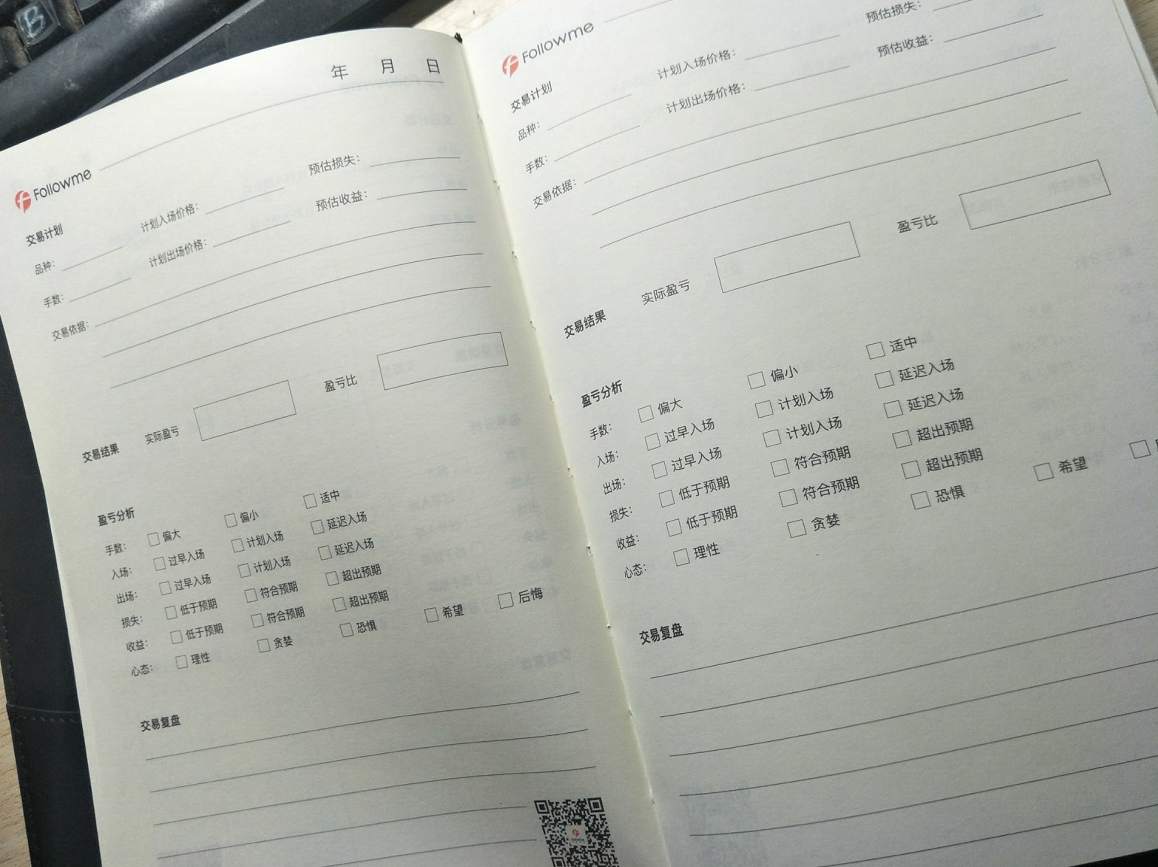 年 月 日
Followme
交易计划
品种: 计划入场价格: 预估损失:
手数: 计划出场价格: 预估收益:
交易依据:
交易结果 实际盈亏 盈亏比
盈亏分析
手数: 偏大 偏小 适中
入场: 过早入场 计划入场 延迟入场
出场: 过早入场 计划入场 延迟入场
损失: 低于预期 符合预期 超出预期
收益: 低于预期 符合预期 超出预期
心态: 理性 贪婪 恐惧 希望 后悔
交易复盘
Followme
交易计划
品种: 计划入场价格: 预估损失:
手数: 计划出场价格: 预估收益:
交易依据:
交易结果 实际盈亏 盈亏比
盈亏分析
手数: 偏大 偏小 适中
入场: 过早入场 计划入场 延迟入场
出场: 过早入场 计划入场 延迟入场
损失: 低于预期 符合预期 超出预期
收益: 低于预期 符合预期 超出预期
心态: 理性 贪婪 恐惧 希望
交易复盘
B